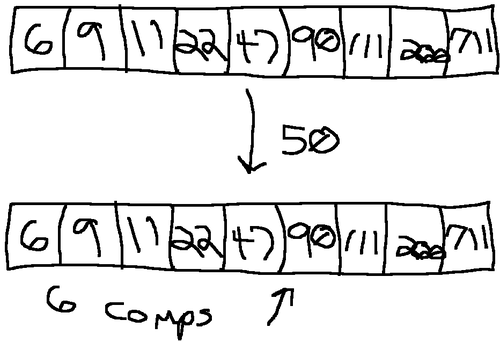 6 9 11 22 47 90 111 200 711
50
6 9 11 22 47 90 111 200 711
6 comps